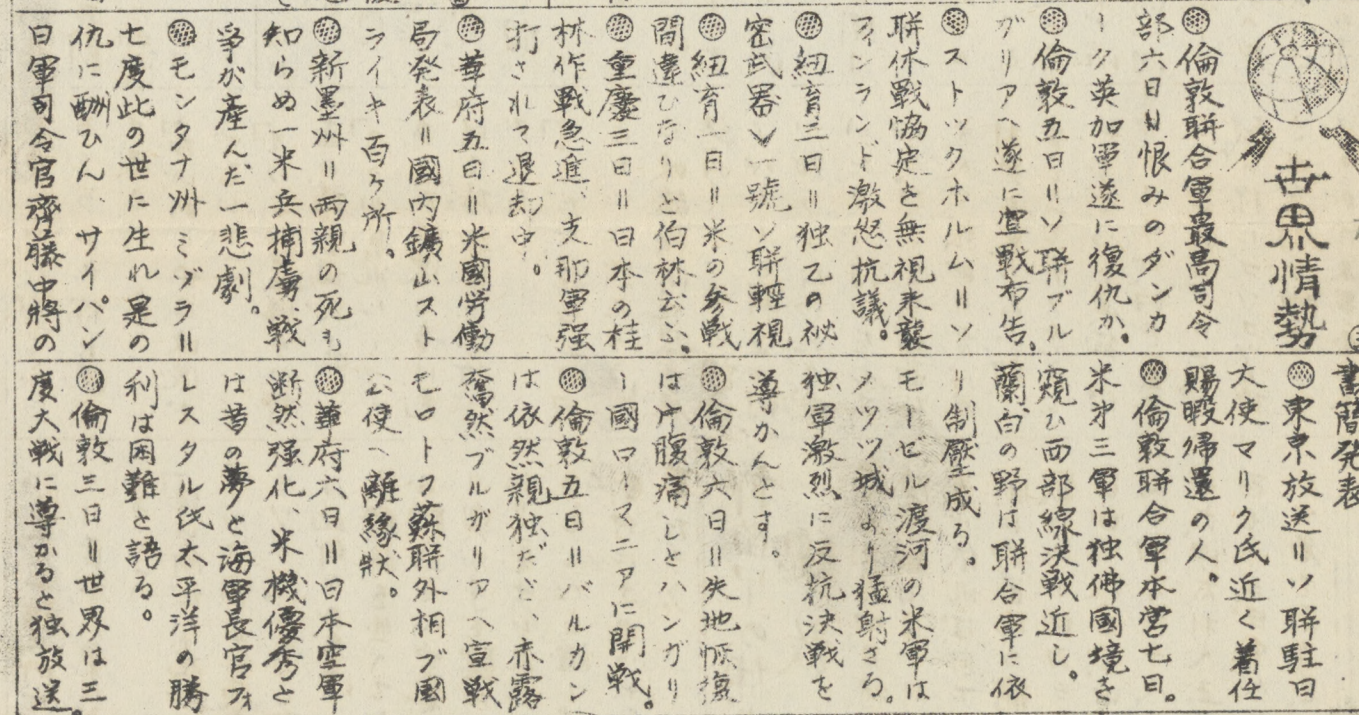 世界情勢
◉倫敦聯合軍最高司令
部六日〃恨みのダンカ
ーク英加軍遂に復仇か。
◉倫敦五日〃ソ聯ブル
ガリアへ遂に宣戦布告。
◉ストックホルム〃ソ
聯休戦協定を無視来襲
フィンランド激怒抗議。
◉紐育三日〃独乙の祕
密武器V一號ソ聯軽視
◉紐育一日〃米の参戦
間違ひなりと伯林云ふ。
◉重慶三日〃日本の桂
林作戦急進、支那軍强
打されて退却中。
◉華府五日〃米國労働
局発表〃國内鑛山スト
ライキ百ヶ所。
◉新墨州〃両親の死も
知らぬ一米兵捕虜、戦
爭が産んだ一悲劇。
◉モンタナ州ミゾラ〃
七度此の世に生れ是の
仇に酬ひん、サイパン
日軍司令官齊藤中將の
書簡発表
◉東京放送〃ソ聯駐日
大使マリク氏近く着任
賜暇帰還の人。
◉倫敦聯合軍本営七日。
米㐧三軍は独佛國境を
窺ひ西部線決戦近し。
蘭白の野は聯合軍に依
り制壓成る。
モーゼル渡河の米軍は
メッツ城より猛射さる。
独軍激烈に反抗決戦を
導かんとす。
◉倫敦六日〃失地恢復
は片腹痛しとハンガリ
ー國ローマニアに開戦。
◉倫敦五日〃バルカン
は依然親独だと、赤露
奮然ブルガリアへ宣戦
モロトフ蘇聯外相ブ國
公使へ離縁狀。
◉華府六日〃日本空軍
断然强化、米機優秀と
は昔の夢と海軍長官フォ
レスタル氏太平洋の勝
利は困難と語る。
◉倫敦三日〃世界は三
度大戦に導かると独放送。